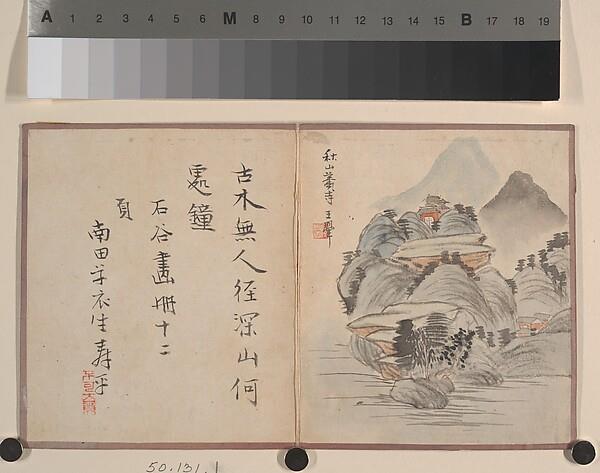 A 1 2 3 4 5 6 M 8 9 10 11 12 13 14 15 B 17 18 19
秋山蕭寺 王翬
古木無人徑深山何
處鐘
石谷畫冊十二
頁
南田草衣生壽平
50.131.1